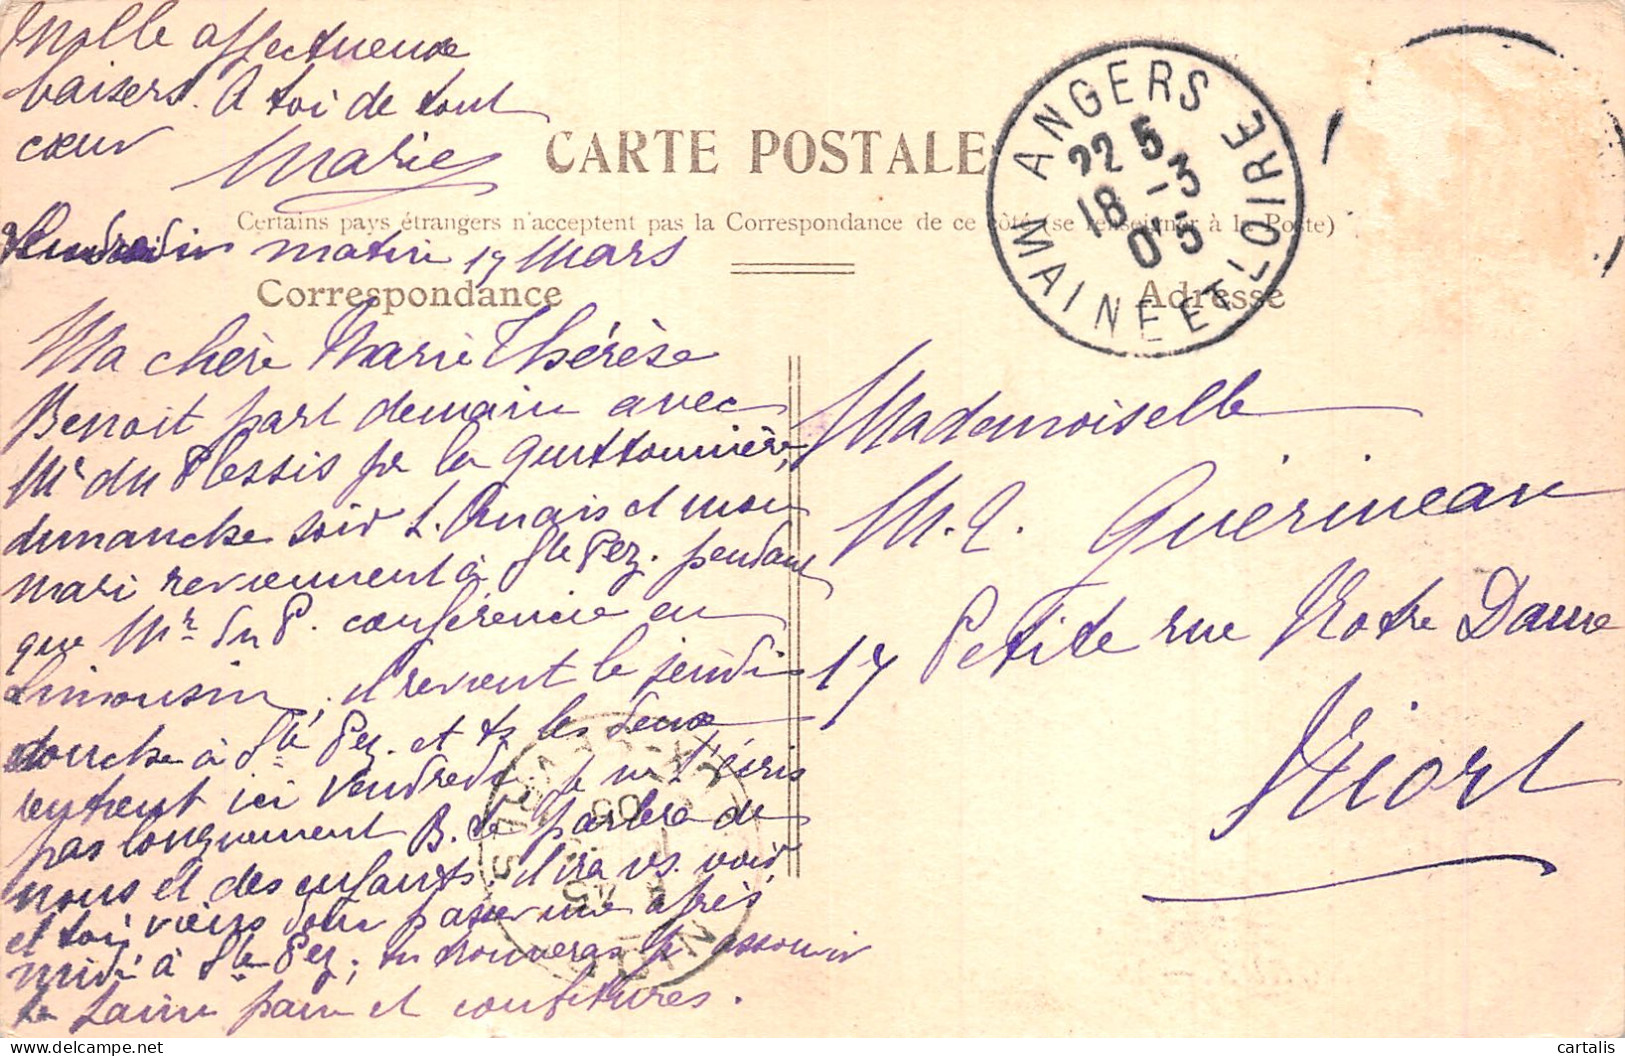 Mille affectueux
baisers. A toi de tout
cœur
Marie
CARTE POSTALE
Certains pays étrangers n'acceptent pas la Correspondance de ce côté (se renseigner à la Poste)
Vendredi matin 17 Mars
Correspondance
Adresse
ANGERS
22 5
18 -3
05
MAINE ET LOIRE
Ma chère Marie Thérèse
Benoit part demain avec
Mr du Plessis pr la Guittonnière,
dimanche soir L. Anais et mon
mari reviennent à Ste Pez. pendant
que Mr. du P. conférencie en
Limousin, il revient le jeudi
touche à Ste Pez. et ts les deux
rentrent ici vendredi. je ne t'écris
pas longuement B. te parlera de
nous et des enfants. il ira vs. voir
et toi, viens donc passer une après
midi à Ste Pez, tu trouveras pr assouvir
ta faim pain et confitures.
Mademoiselle
M. T. Guérineau
17 Petite rue Notre Dame
Niort
cartalis
delcampe.net